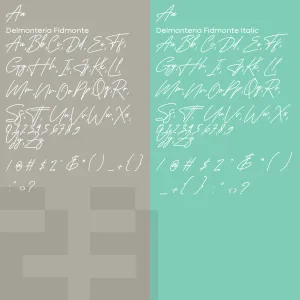 Aa
Delmonteria Fidmonte
Aa, Bb, Cc, Dd, Ee, Ff,
Gg, Hh, Ii, Jj, Kk, Ll
Mm, Nn, Oo, Pp, Qq, Rr,
Ss, Tt, Uu, Vv, Ww, Xx,
Aa
Delmonteria Fidmonte Italic
Aa, Bb, Cc, Dd, Ee, Ff,
Gg, Hh, Ii, Jj, Kk, Ll
Mm, Nn, Oo, Pp, Qq, Rr,
Ss, Tt, Uu, Vv, Ww, Xx,